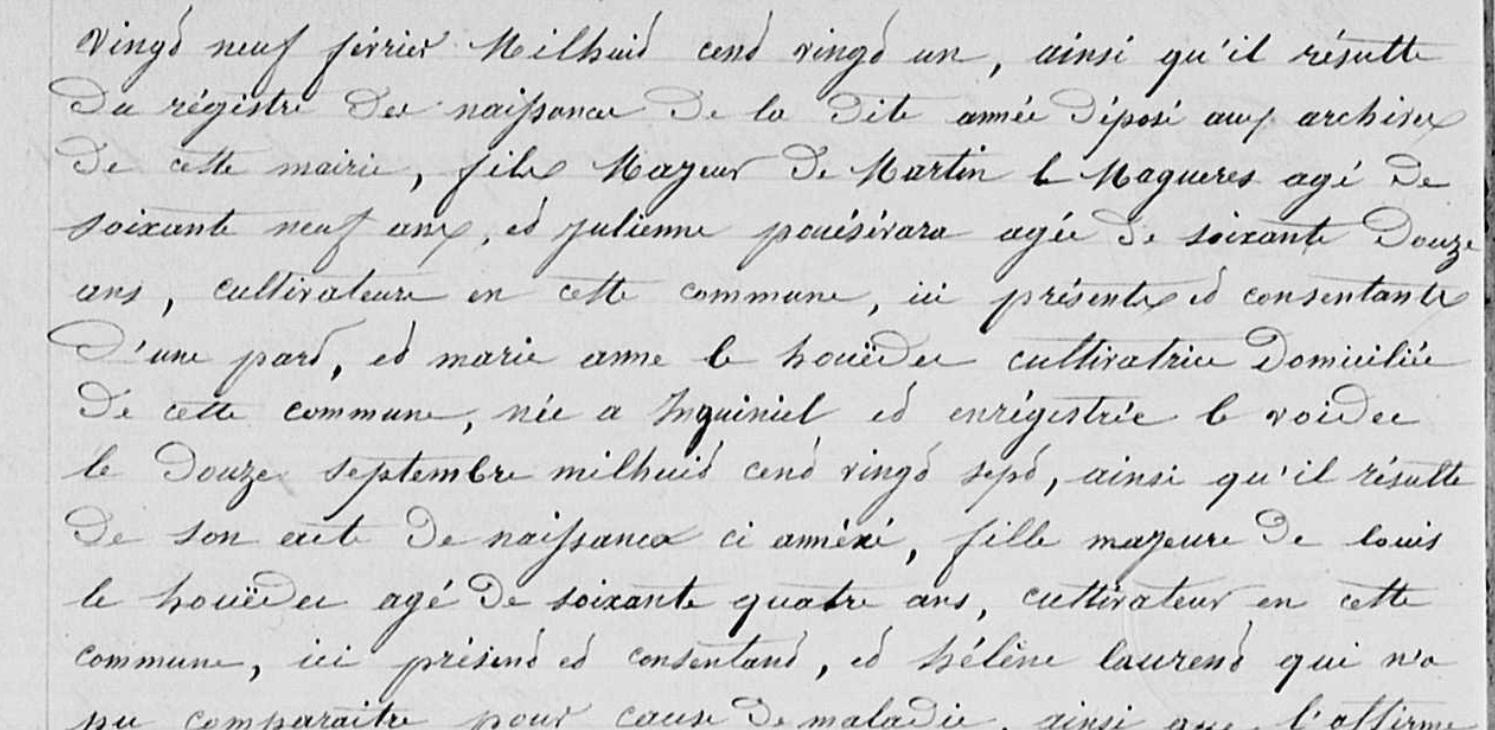 vingt neuf février Milhuit cent vingt un, ainsi qu'il résulte
Du régistre Des naissance De la Dite année Déposé aux archives
De cette mairie, fils Majeur De Martin le Magueres agé De
soixante neuf ans, et julienne pouésévara agée De soixante Douze
ans, cultivateurs en cette commune, ici présents et consentants
D'une part, et marie anne le houëdec cultivatrice Domiciliée
De cette commune, née a Inguiniel et enrégistrée le voidec
le Douze septembre milhuit cent vingt sept, ainsi qu'il résulte
De son acte De naissance ci annéxé, fille majeure De louis
le houëdec agé De soixante quatre ans, cultivateur en cette
commune, ici présent et consentant, et hélène laurent qui n'a
pu comparaitre pour cause De maladie, ainsi que l'affirme